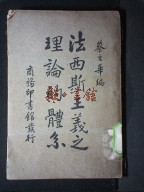 蔡之華編
法西斯主義之
理論體系
商務印書館發行